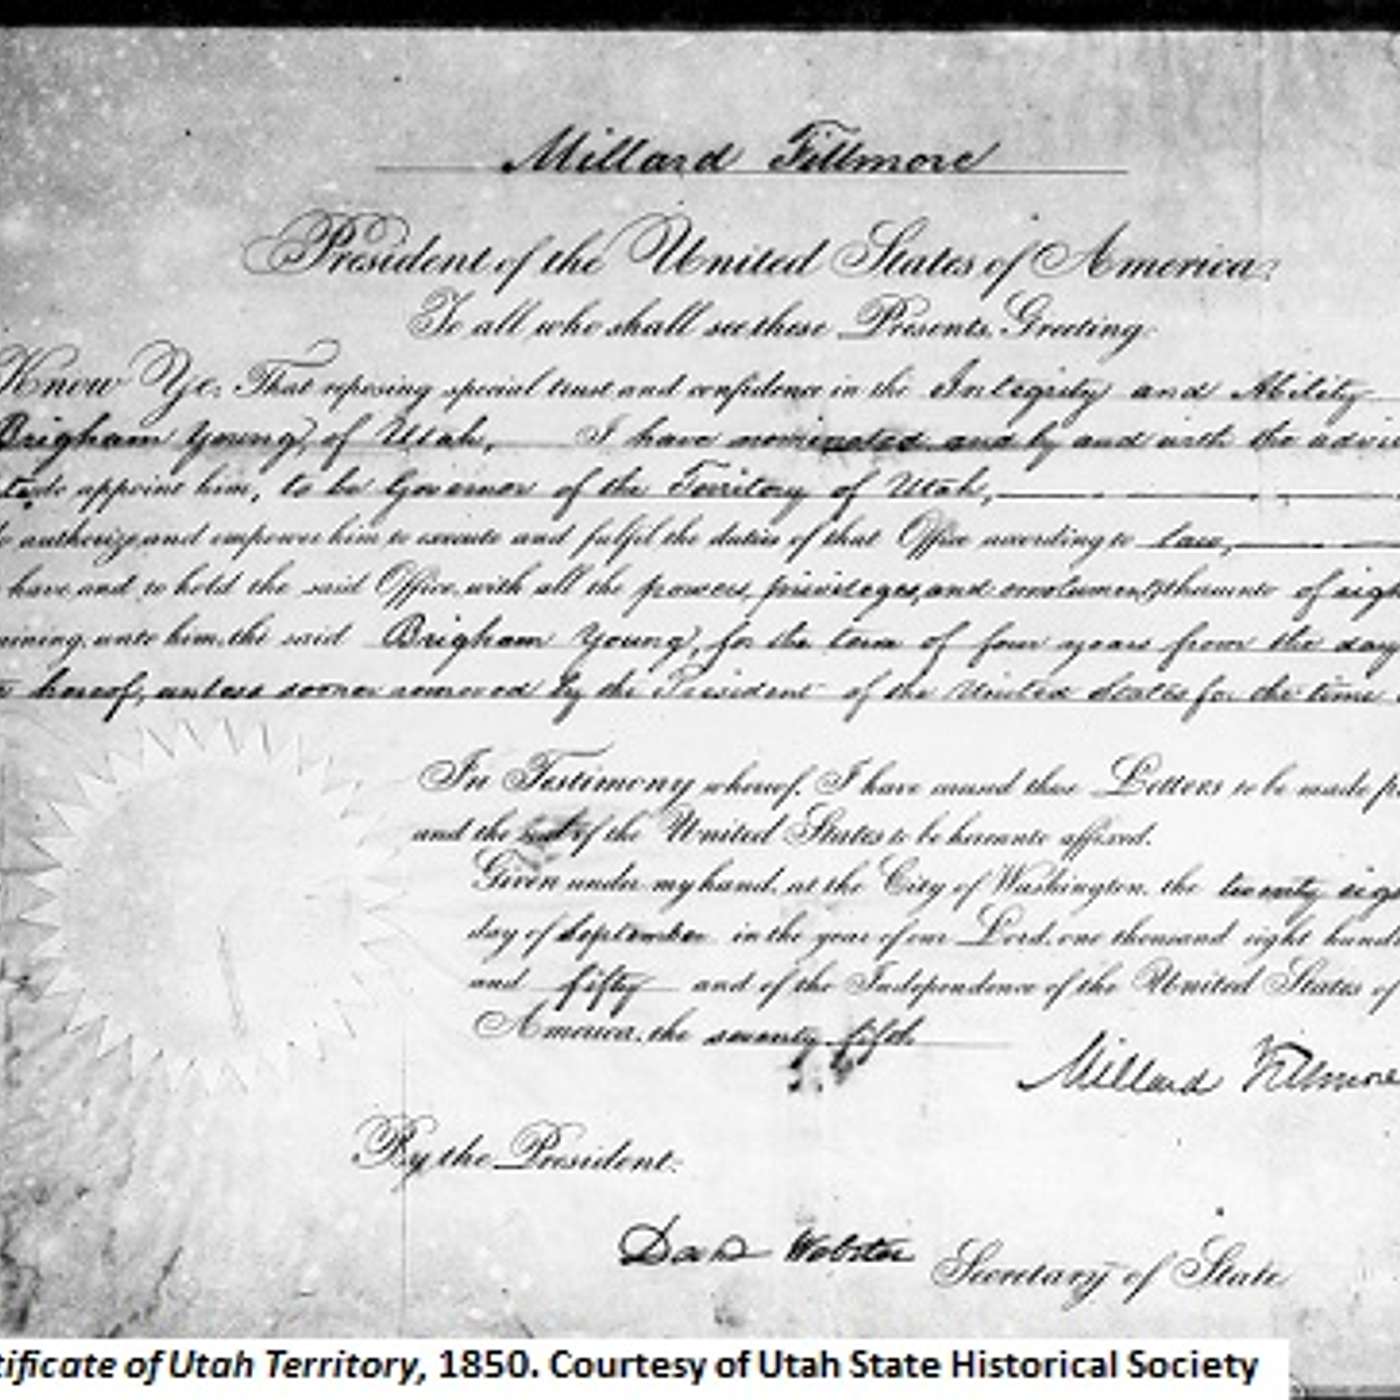 Millard Fillmore
President of the United States of America,
To all who shall see these Presents, Greeting:
Know Ye, That reposing special trust and confidence in the Integrity and Ability
Brigham Young, of Utah, I have nominated and by and with the advi
do appoint him, to be Governor of the Territory of Utah,
authorize and empower him to execute and fulfil the duties of that Office according to law,
have and to hold the said Office, with all the powers, privileges, and emoluments thereunto of righ
ining, unto him, the said Brigham Young, for the term of four years from the day
hereof, unless sooner removed by the President of the United States for the time
In Testimony whereof, I have caused these Letters to be made p
and the seal of the United States to be hereunto affixed.
Given under my hand, at the City of Washington, the twenty eig
day of September in the year of our Lord, one thousand eight hund
and fifty and of the Independence of the United States of
America, the seventy fifth
Millard Fillmore
By the President:
Danl Webster Secretary of State
tificate of Utah Territory, 1850. Courtesy of Utah State Historical Society